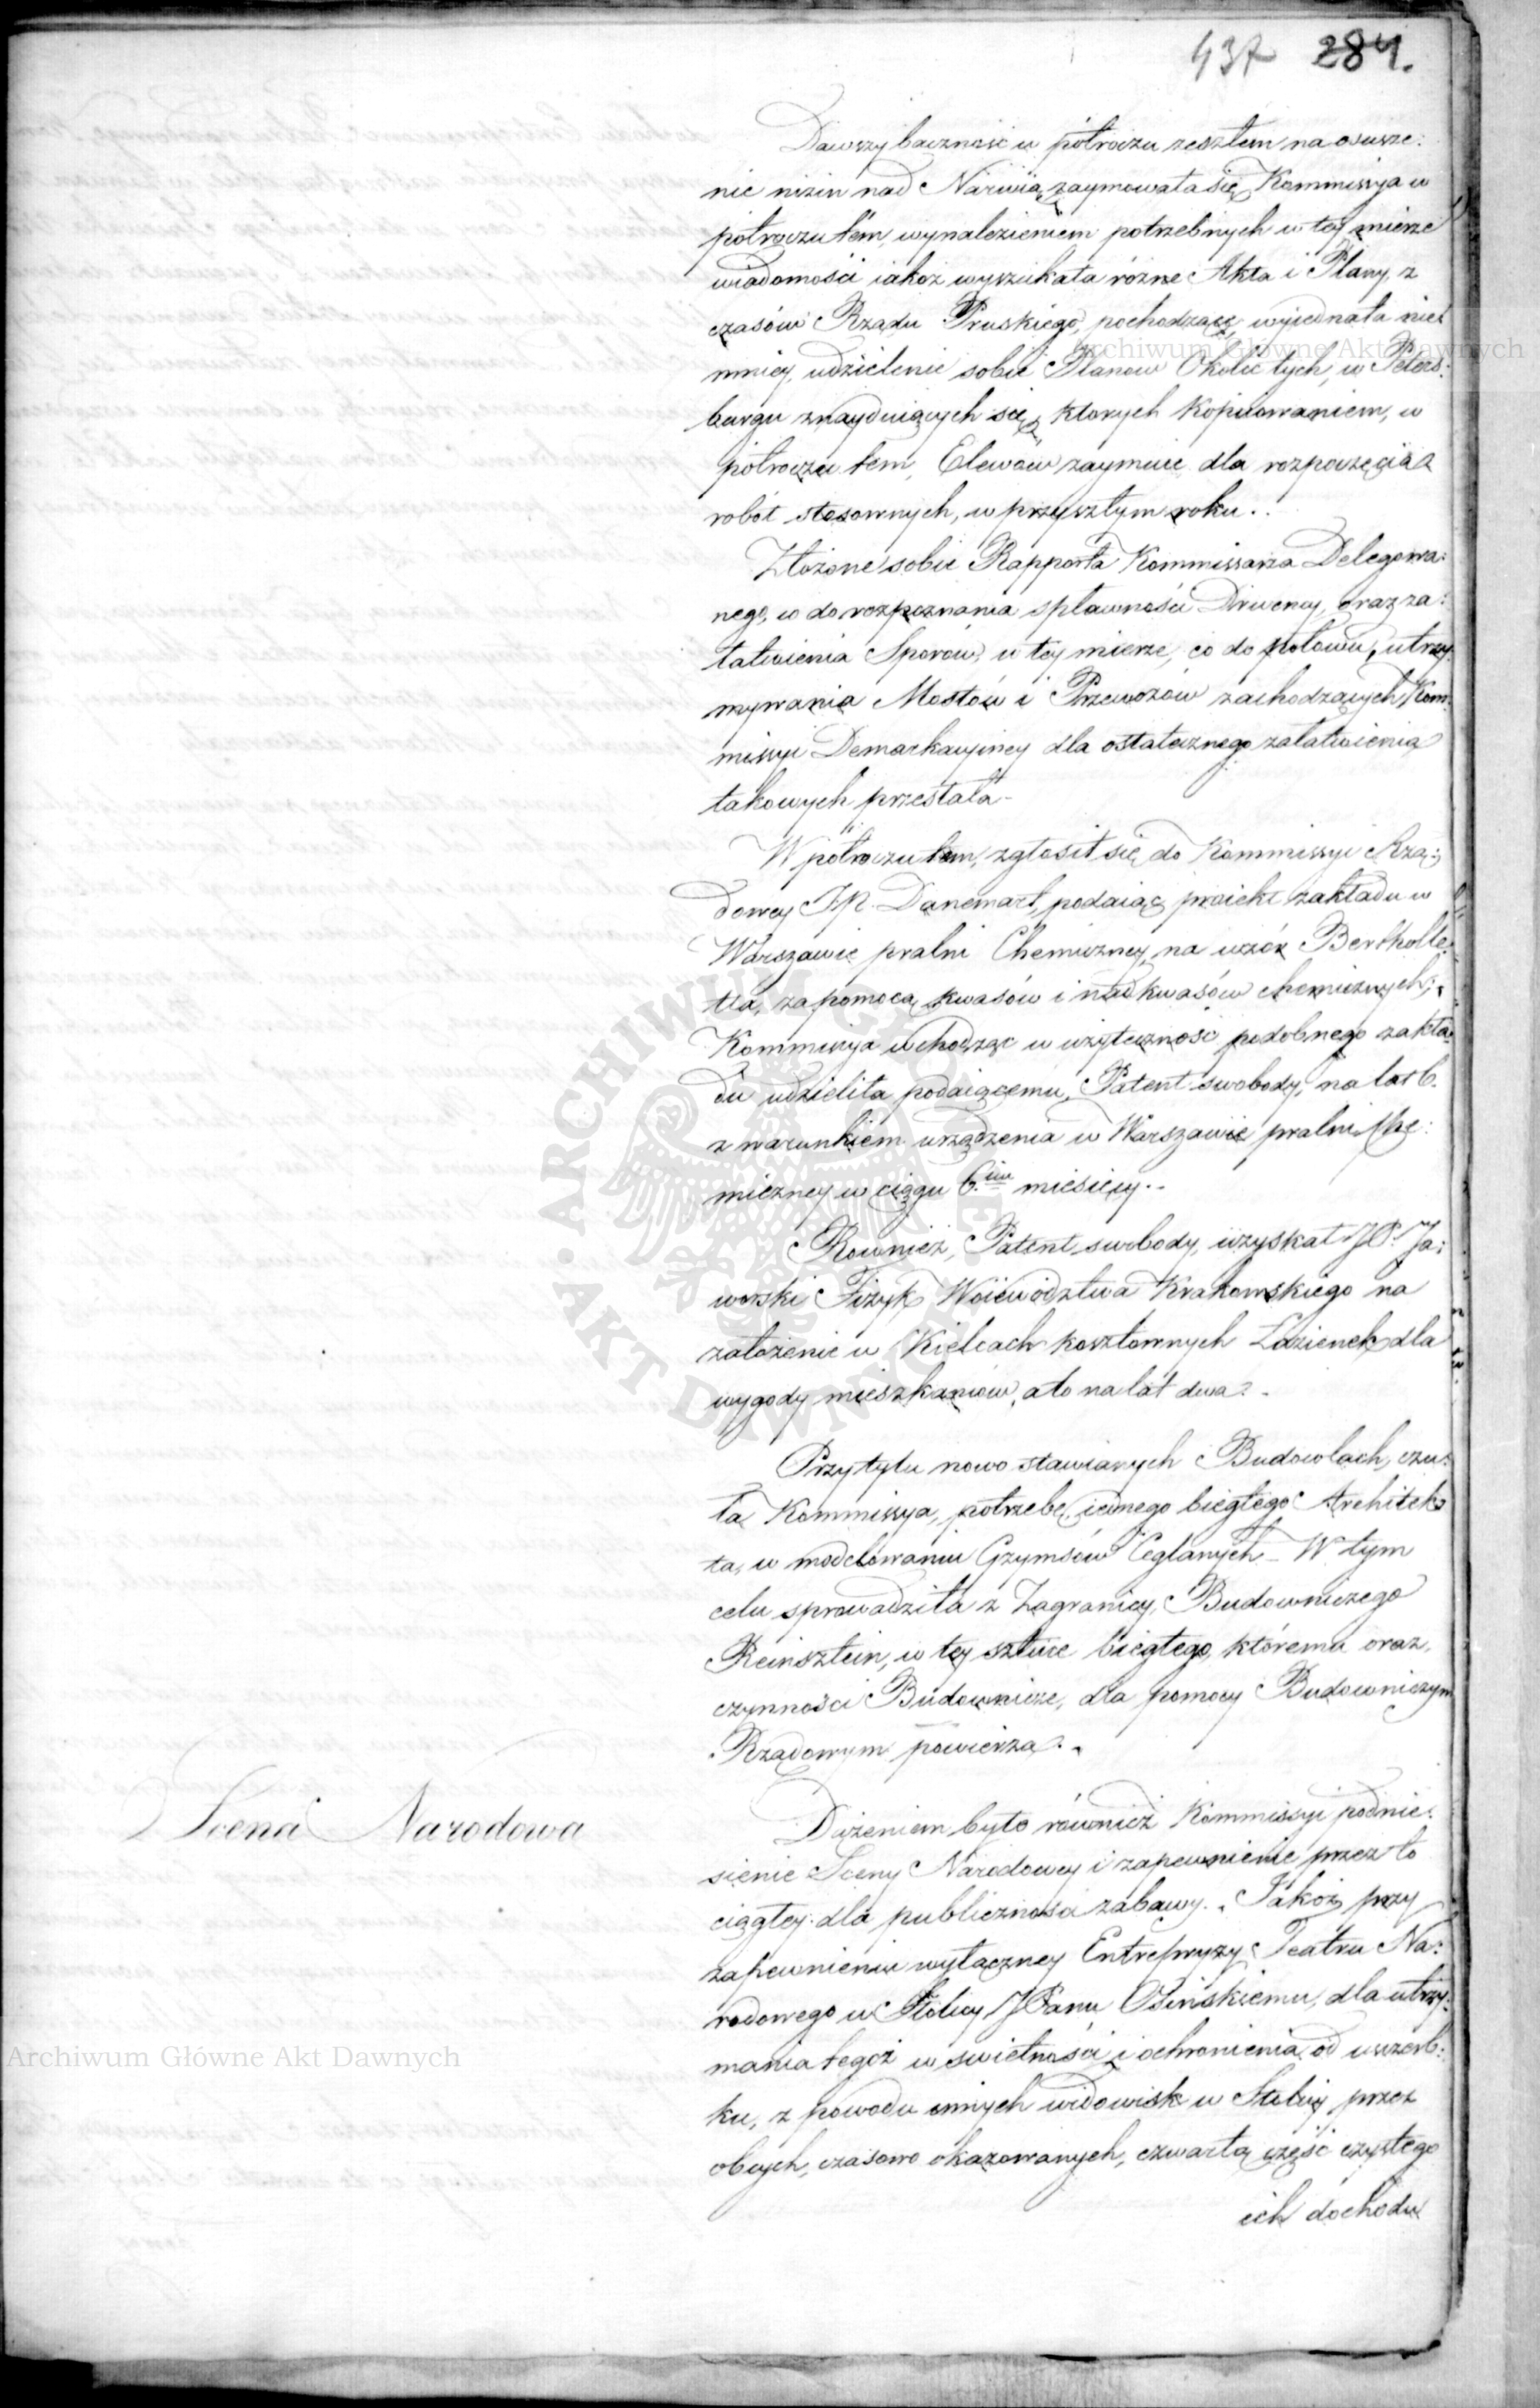 437 284.
Dawszy baczność w półroczu zeszłém na osusze:
nie nizin nad Narwią, zaymowała się Kommissya w
półroczu tém, wynalezieniem potrzebnych w tey mierze
wiadomości iakoż wyszukała różne Akta i Plany, z
czasów Rządu Pruskiego, pochodzące, wyiednała nie
mniey, udzielenie sobie Planów Okolic tych, w Peters:
burgu znayduiących się, ktorych kopiowaniem, w
półroczu tem, Elewów zaymuie, dla rozpoczęcia
robót stosownych, w przyszłym roku.
Złożone sobie Rapporta Kommissarza Delegowa:
nego, do rozpoznania spławności Drwency, oraz za:
łatwienia Sporów, w tey mierze, co do połowu, utrzy:
mywania Mostów i Przewozów zachodzących, Kom:
missyi Demarkacyiney dla ostatecznego załatwienia
takowych przesłała.
W półroczu tem, zgłosił się do Kommissyi Rzą:
dowey JP. Danemart, podaiąc proiekt zakładu w
Warszawie pralni Chemiczney, na wzór Bertholle:
ta, za pomocą kwasów i nadkwasów chemicznych;
Kommissya wchodząc w użyteczność podobnego zakła:
du udzieliła podaiącemu, Patent swobody, na lat 6.
z warunkiem urządzenia w Warszawie pralni Che:
miczney w ciągu 6.ciu miesięcy.
Rownież, Patent swobody, uzyskał JP. Ja:
worski Fizyk Woiewództwa Krakowskiego na
założenie w Kielcach kosztownych Łazienek dla
wygody mieszkańców, a to na lat dwa.
Przy tylu nowo stawianych Budowlach, czu:
ła Kommissya, potrzebę, iednego biegłego Architek
ta, w modelowaniu Gzymsów Ceglanych. W tym
celu sprowadziła z Zagranicy, Budowniczego
Reinsztein, w tey sztuce biegłego, któremu oraz,
czynności Budownicze, dla pomocy Budowniczym
Rządowym powierza.
Scena Narodowa
Dążeniem było również Kommissyi podnie:
sienie Sceny Narodowey i zapewnienie przez to
ciągłey dla publiczności zabawy. Jakoż przy
zapewnieniu wyłączney Entrepryzy Teatru Na:
rodowego w Stolicy JPanu Osińskiemu, dla utrzy:
mania tegoż w swietności i ochronienia od uszczerb:
ku, z powodu innych widowisk w Stolicy przez
obcych, czasowo okazowanych, czwartą część czystego
ich dochodu
Archiwum Główne Akt Dawnych
Archiwum Główne Akt Dawnych